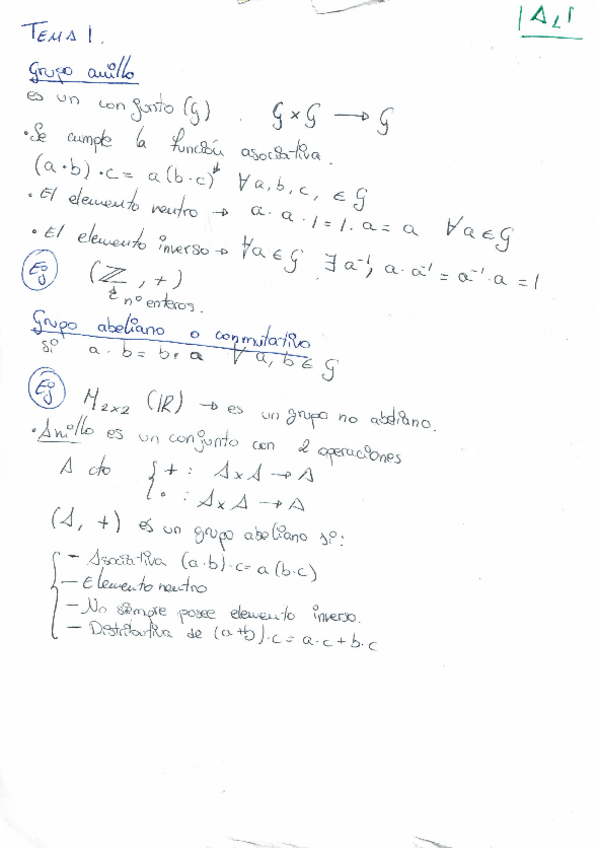 TEMA 1.
Grupo anillo
es un conjunto (G). G × G → G
• Se cumple la función asociativa.
(a · b) · c = a (b · c) ∀ a, b, c, ∈ G
• El elemento neutro → a · a · 1 = 1 · a = a ∀ a ∈ G
• El elemento inverso → ∀ a ∈ G ∃ a⁻¹, a · a⁻¹ = a⁻¹ · a = 1
Ej (ℤ, +)
nº enteros.
Grupo abeliano o conmutativo
si a · b = b · a ∀ a, b ∈ G
Ej M₂ₓ₂ (ℝ) → es un grupo no abeliano.
• Anillo es un conjunto con 2 operaciones
A cto { + : A × A → A
• : A × A → A
(A, +) es un grupo abeliano si:
- Asociativa (a · b) · c = a (b · c)
- Elemento neutro
- No siempre posee elemento inverso.
- Distributiva de (a + b) · c = a · c + b · c